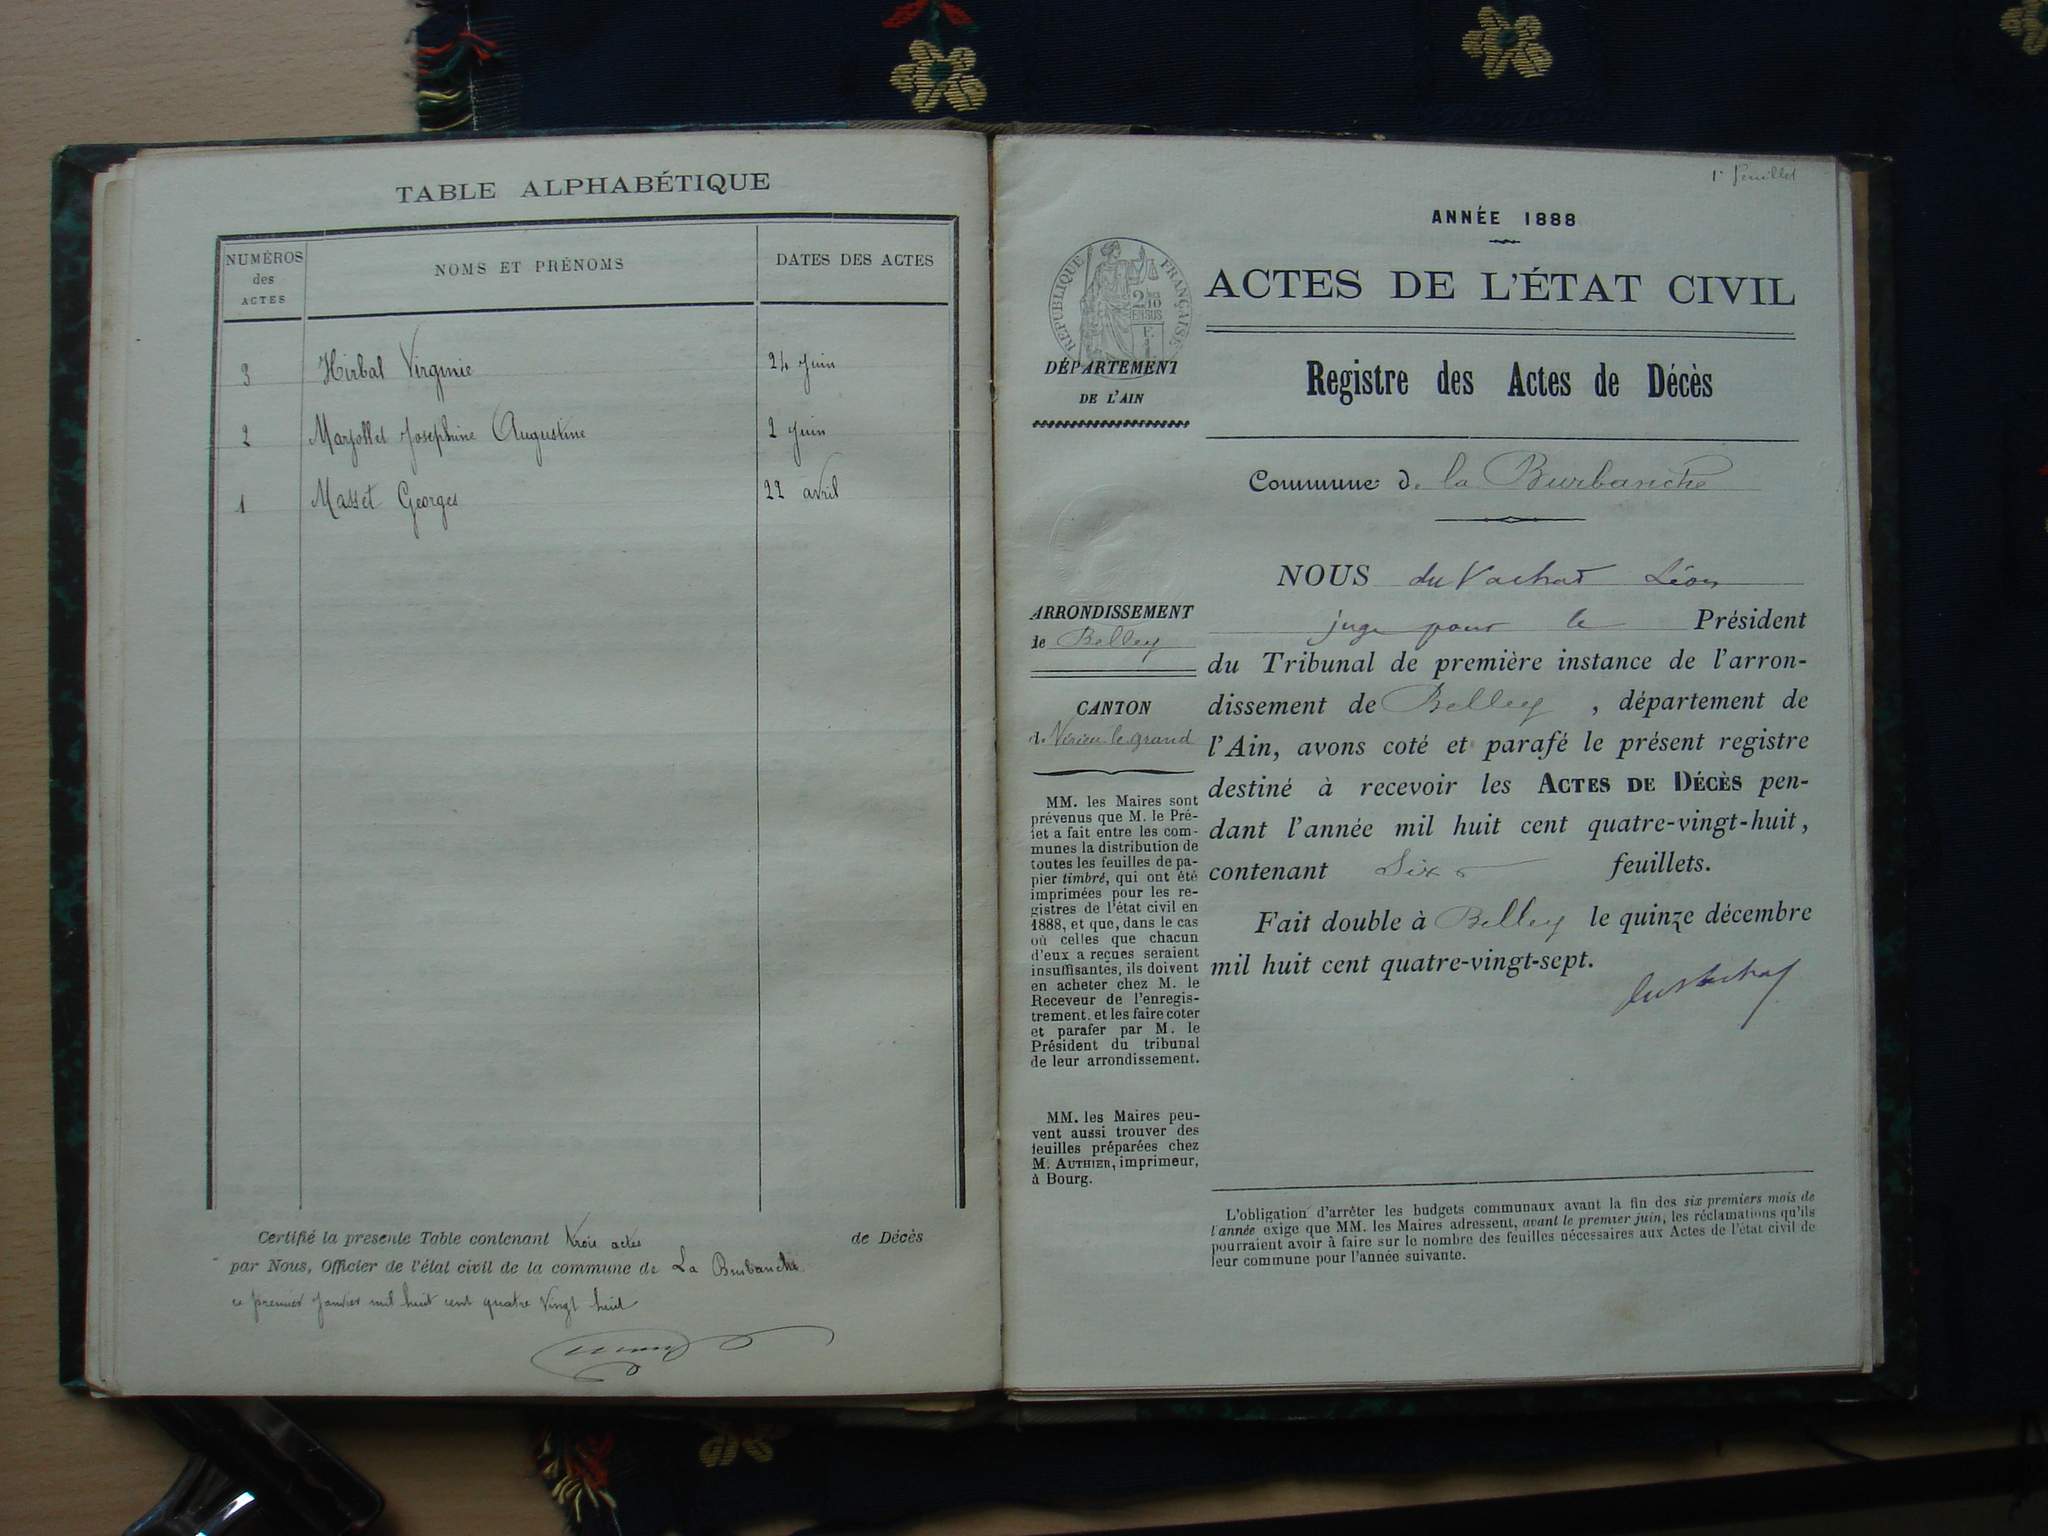 TABLE ALPHABÉTIQUE
NUMÉROS
des
ACTES
NOMS ET PRÉNOMS
DATES DES ACTES
3 Hirbal Virginie 24 Juin
2 Marjollet Josephine Augustine 2 Juin
1 Masset Georges 22 avril
Certifié la présente Table contenant trois actes de Décès
par Nous, Officier de l'état civil de la commune de La Burbanche
ce premier Janvier mil huit cent quatre vingt huit
1er feuillet
ANNÉE 1888
ACTES DE L'ÉTAT CIVIL
RÉPUBLIQUE FRANÇAISE
2/10
EN SUS
DÉPARTEMENT
DE L'AIN
Registre des Actes de Décès
Commune de la Burbanche
ARRONDISSEMENT
de Belley
CANTON
de Virieu-le-grand
MM. les Maires sont
prévenus que M. le Pré-
fet a fait entre les com-
munes la distribution de
toutes les feuilles de pa-
pier timbré, qui ont été
imprimées pour les re-
gistres de l'état civil en
1888, et que, dans le cas
où celles que chacun
d'eux a reçues seraient
insuffisantes, ils doivent
en acheter chez M. le
Receveur de l'enregis-
trement. et les faire coter
et parafer par M. le
Président du tribunal
de leur arrondissement.
MM. les Maires peu-
vent aussi trouver des
feuilles préparées chez
M. AUTHIER, imprimeur,
à Bourg.
NOUS du Vachat Léon
juge pour le Président
du Tribunal de première instance de l'arron-
dissement de Belley, département de
l'Ain, avons coté et parafé le présent registre
destiné à recevoir les ACTES DE DÉCÈS pen-
dant l'année mil huit cent quatre-vingt-huit,
contenant Six feuillets.
Fait double à Belley le quinze décembre
mil huit cent quatre-vingt-sept.
du Vachat
L'obligation d'arrêter les budgets communaux avant la fin des six premiers mois de
l'année exige que MM. les Maires adressent, avant le premier juin, les réclamations qu'ils
pourraient avoir à faire sur le nombre des feuilles nécessaires aux Actes de l'état civil de
leur commune pour l'année suivante.